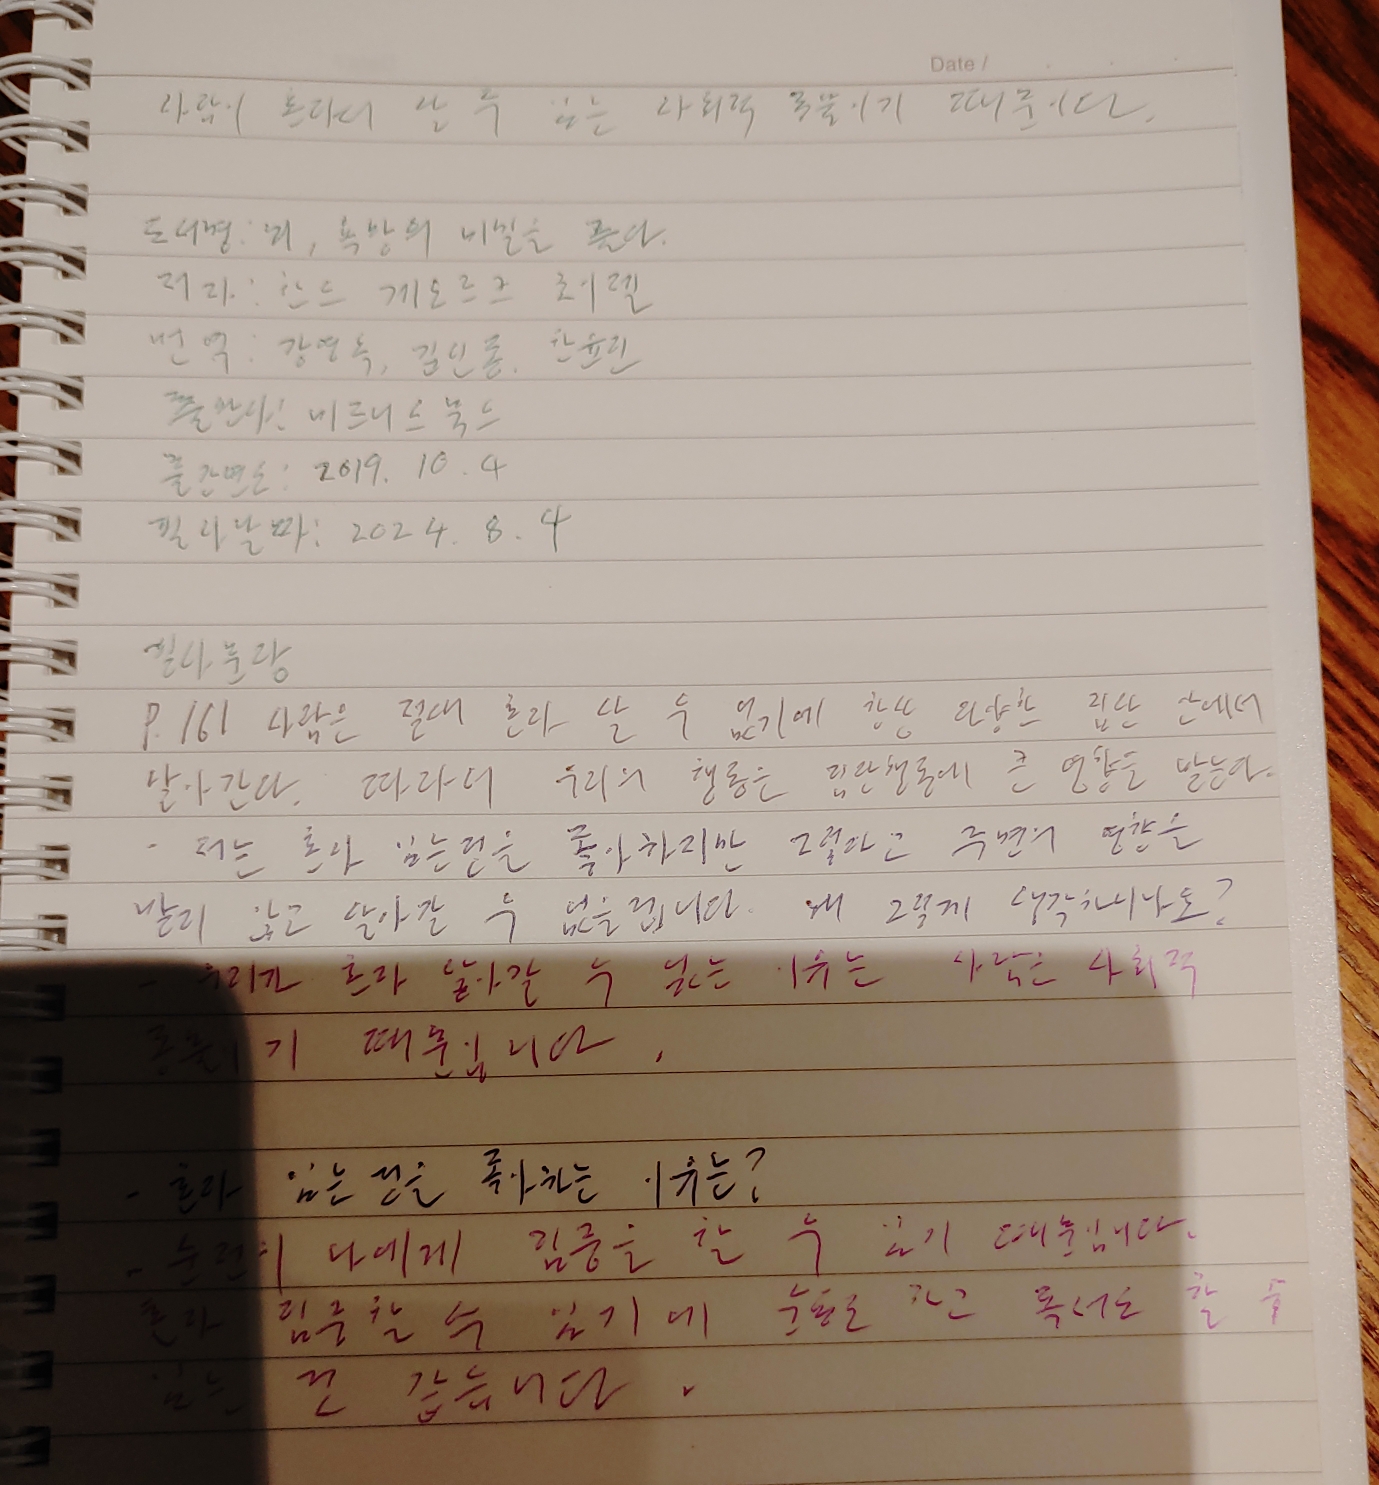 Date /
사람이 혼자서 살 수 있는 사회적 동물이기 때문이다.
도서명: 뇌, 욕망의 비밀을 풀다.
저자: 한스 게오르크 호이젤
번역: 강영옥, 김신종, 한윤진
출판사: 비즈니스북스
출간연도: 2019. 10. 4
필사날짜: 2024. 8. 4
필사문장
P. 161 사람은 절대 혼자 살 수 없기에 항상 다양한 집단 안에서
살아간다. 따라서 우리의 행동은 집단행동에 큰 영향을 받는다.
- 저는 혼자 있는것을 좋아하지만 그렇다고 주변의 영향을
받지 않고 살아갈 수 없을겁니다. 왜 그렇게 생각하시나요?
- 우리가 혼자 살아갈 수 없는 이유는 사람은 사회적
동물이기 때문입니다.
- 혼자 있는것을 좋아하는 이유는?
- 온전히 나에게 집중을 할 수 있기 때문입니다.
혼자 집중할 수 있기에 운동도 하고 독서도 할 수
있는 것 같습니다.